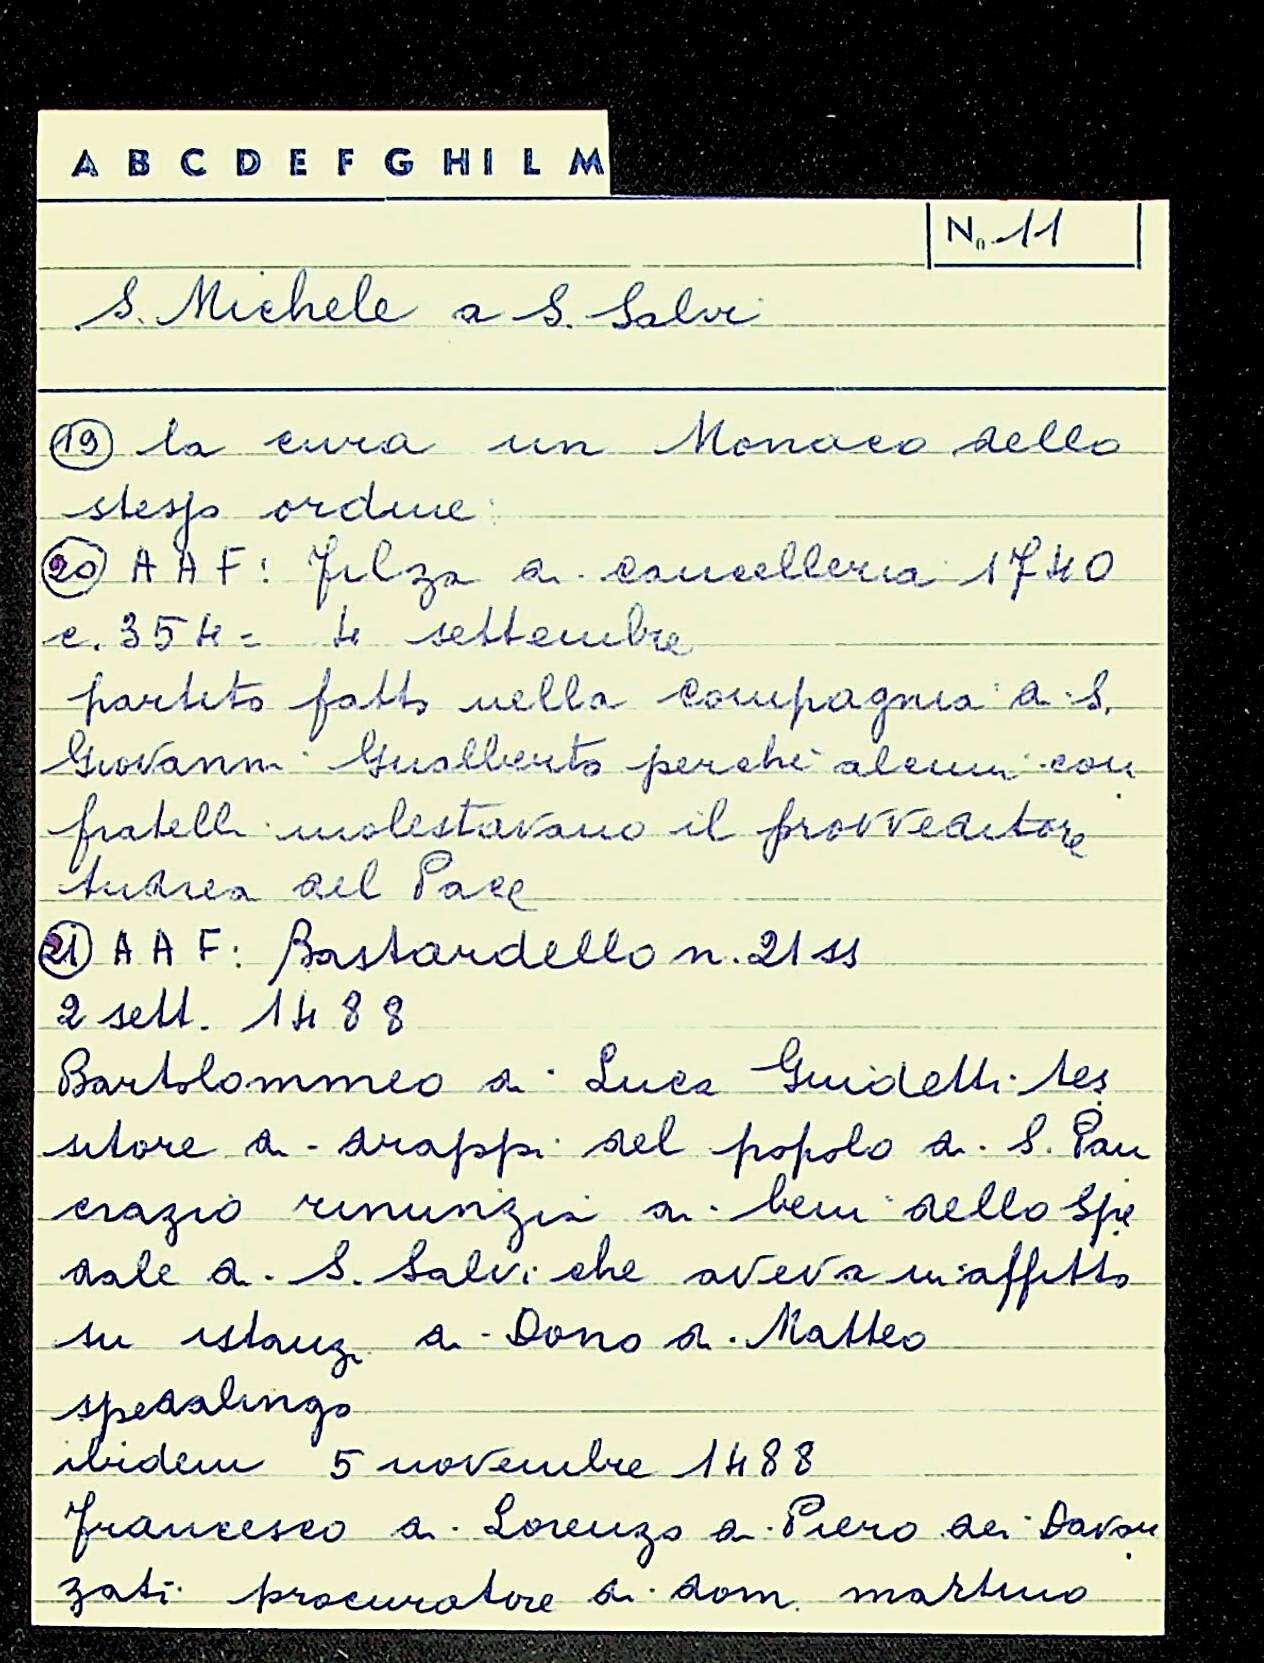 A B C D E F G H I L M
No. 11
S. Michele a S. Salvi
19 la cura un Monaco dello
stesso ordine
20 A A F: Filza di cancelleria 1740
c. 354 = 4 settembre
partito fatto nella compagnia di S.
Giovanni Gualberto perchè alcuni con
fratelli molestavano il provveditore
Andrea del Pace
21 A A F: Bastardello n. 21 ss
2 sett. 1488
Bartolommeo di Luca Guidetti tes
sitore di drappi del popolo di S. Pan
crazio rinunzia ai beni dello Spe
dale di S. Salvi che aveva in affitto
su istanz. di Dono di Matteo
spedalingo
ibidem 5 novembre 1488
Francesco di Lorenzo di Piero dei Davan
zati procuratore di dom. martino